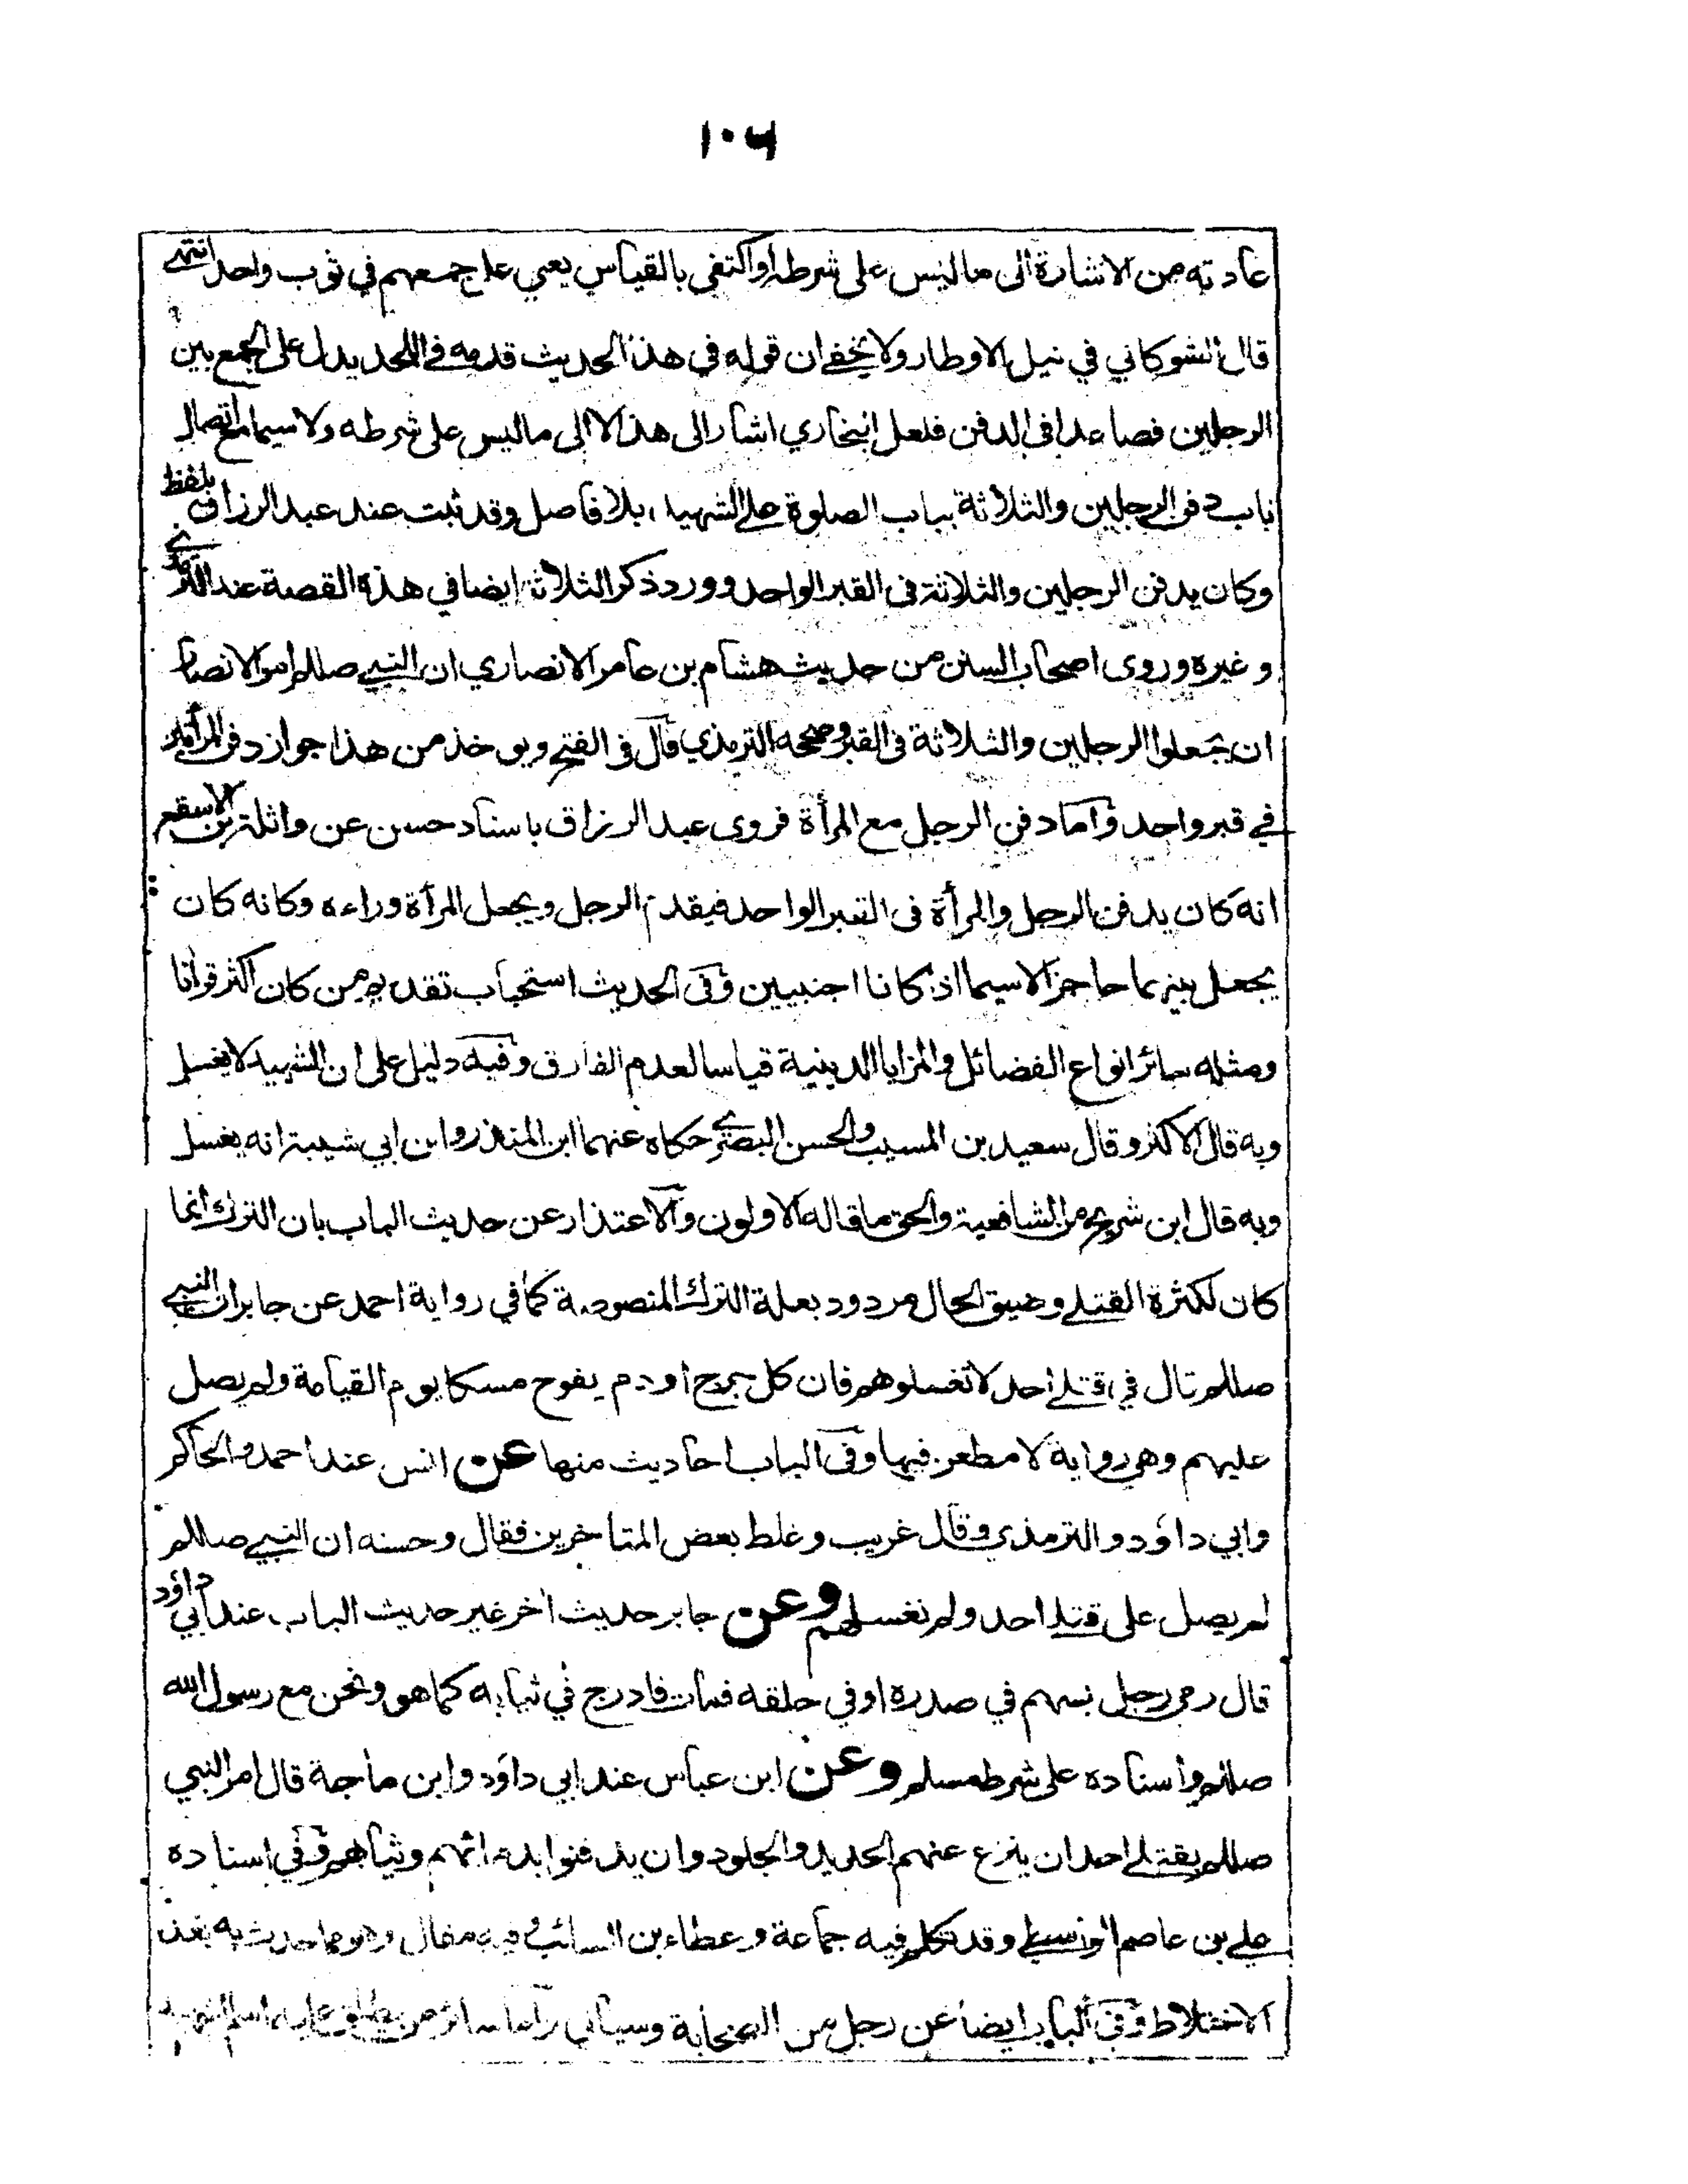 ١٠٦
عادته من الاشارة الى ما ليس على شرطه او اكتفى بالقياس يعني على جمعهم في ثوب واحد انتهى
قال الشوكاني في نيل الاوطار ولا يخفى ان قوله في هذا الحديث قدمه في اللحد يدل على الجمع بين
الرجلين فصاعدا في الدفن فلعل البخاري اشار الى هذا لا الى ما ليس على شرطه ولا سيما مع اتصال
باب دفن الرجلين والثلاثة بباب الصلوة على الشهيد بلا فاصل وقد ثبت عند عبد الرزاق بلفظ
وكان يدفن الرجلين والثلاثة في القبر الواحد وورد ذكر الثلاثة ايضا في هذه القصة عند الترمذي
وغيره وروى اصحاب السنن من حديث هشام بن عامر الانصاري ان النبي صللم امر الانصار
ان يجعلوا الرجلين والثلاثة في القبر وصححه الترمذي قال في الفتح ويوخذ من هذا جواز دفن المرأتين
في قبر واحد واما دفن الرجل مع المرأة فروى عبد الرزاق باسناد حسن عن واثلة بن الاسقع
انه كان يدفن الرجل والمرأة في القبر الواحد فيقدم الرجل ويجعل المرأة وراءه وكانه كان
يجعل بينهما حاجزا لاسيما اذ كانا اجنبيين وفي الحديث استحباب تقديم من كان اكثر قرأنا
ومثله سائر انواع الفضائل والمزايا الدينية قياسا لعدم الفارق وفيه دليل على ان الشهيد لا يغسل
وبه قال الاكثر وقال سعيد بن المسيب والحسن البصري حكاه عنهما ابن المنذر وابن ابي شيبة انه يغسل
وبه قال ابن شريح من الشافعية والحق ما قاله الاولون والاعتذار عن حديث الباب بان الترك انما
كان لكثرة القتلى وضيق الحال مردود بعلة الترك المنصوصة كما في رواية احمد عن جابر ان النبي
صللم قال في قتلى احد لا تغسلوهم فان كل جرح او دم يفوح مسكا يوم القيامة ولم يصل
عليهم وهي رواية لا مطعن فيها وفي الباب احاديث منها عن انس عند احمد والحاكم
وابي داؤد والترمذي وقال غريب وغلط بعض المتاخرين فقال وحسنه ان النبي صللم
لم يصل على قتلى احد ولم نغسلهم وعن جابر حديث أخر غير حديث الباب عند ابي داؤد
قال رمى رجل بسهم في صدره او في حلقه فمات فادرج في ثيابه كما هو ونحن مع رسول الله
صللم واسناده على شرط مسلم وعن ابن عباس عند ابي داؤد وابن ماجة قال امر النبي
صللم بقتلى احد ان ينزع عنهم الحديد والجلود وان يدفنوا بدمائهم وثيابهم وفي اسناده
علي بن عاصم الواسطي وقد تكلم فيه جماعة وعطاء بن السائب وفيه مقال وهو مما حدث به بعد
الاختلاط وفي الباب ايضا عن رجل من الصحابة وسياتي واما سائر من يطلق عليه اسم الشهيد